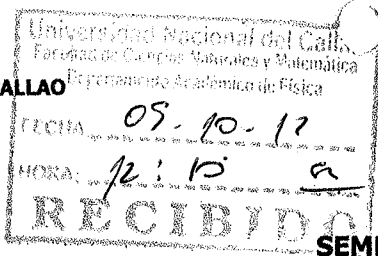 Universidad Nacional del Calla
Facultad de Ciencias Naturales y Matemática
CALLAO
Departamento Académico de Física
FECHA
HORA:
RECIBIDO
SEMI